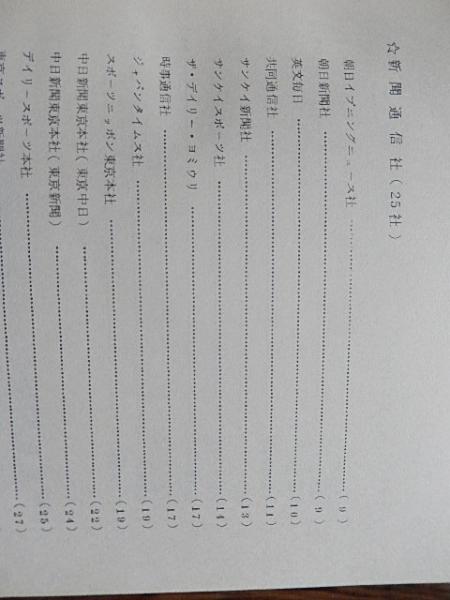 ☆新聞通信社（25社）
朝日イブニングニュース社……………（9）
朝日新聞社……………（9）
英文毎日……………（10）
共同通信社……………（11）
サンケイ新聞社……………（13）
サンケイスポーツ社……………（14）
ザ・デイリー・ヨミウリ……………（17）
時事通信社……………（17）
ジャパンタイムス社……………（19）
スポーツニッポン東京本社……………（19）
中日新聞東京本社（東京中日）……………（22）
中日新聞東京本社（東京新聞）……………（24）
デイリースポーツ本社……………（25）
……………（27）